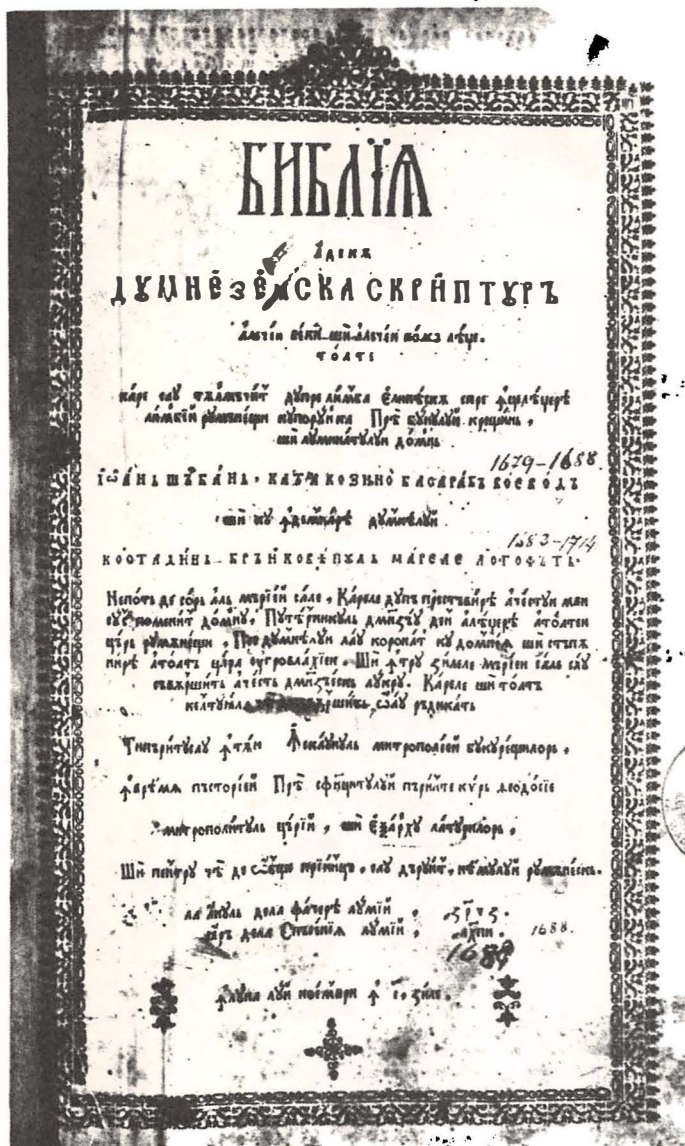 БИБЛЇѦ
Адекѫ
ДꙋМНЕЗЕѦСКА СКРИПТꙋРЪ
але чеи векй ши але чеи ноаѡ лѣџе
тоате
каре сау тѫлмъчит дупре лимба елинѣскъ спре ꙟцелѣџерѣ
лимбїй румънещи кꙋ порꙋнка Прѣ бꙋнꙋлꙋй крещинь,
ши луминатулуй домнь
1679-1688.
ІѠАНЬ ШЪРБАНЬ· КАНТАКОЗИНО БАСАРАБЪ ВОЕВОДЪ
ши ку ꙟдемнарѣ думнѣлуй
1683-1714
КОСТАДИНЬ БРЪНКОВѢНУЛЬ МАРЕЛЕ ЛОГОФЪТЬ·
Непоть де сорь аль мърїей сале, Кареле дупъ престъвирѣ ачестуи маи
сус поменит домну, Путѣрникуль дмнзъу ден алѣџерѣ атоатеи
църъ румѫнещи, Пре думнѣлуи лау коронат ку домнїѧ ши стъпѫ
нирѣ атоатъ цѣра оугровлахїеи. Ши ꙟтру зилеле мърїеи сале сау
съвѫршить ачесть дмнзъеск лукру. Кареле ши тоатъ
келтуїала съвѫршить ѡау ръдикать
Типъритусау ꙟтѫи ꙟ скаунуль митрополїей букурещилорь,
ꙟ врѣмѧ пъсторїей Прѣ сфинцитулуй пъринте кѵрь ѳеодосїе
митрополитуль църїй, ши еѯархꙋ латꙋрилорь,
Ши пентру чѣ де ѡбще прїинцъ, сау дъруит, нѣмулуй румѫнескь.
ла Анꙋль дела фачерѣ лꙋмїй, ҂зрчз.
ѩръ дела Спъсенїѧ лꙋмїй, ҂ахпи. 1688.
1688
ꙟ луна луй ноември ꙟ і, зиле.